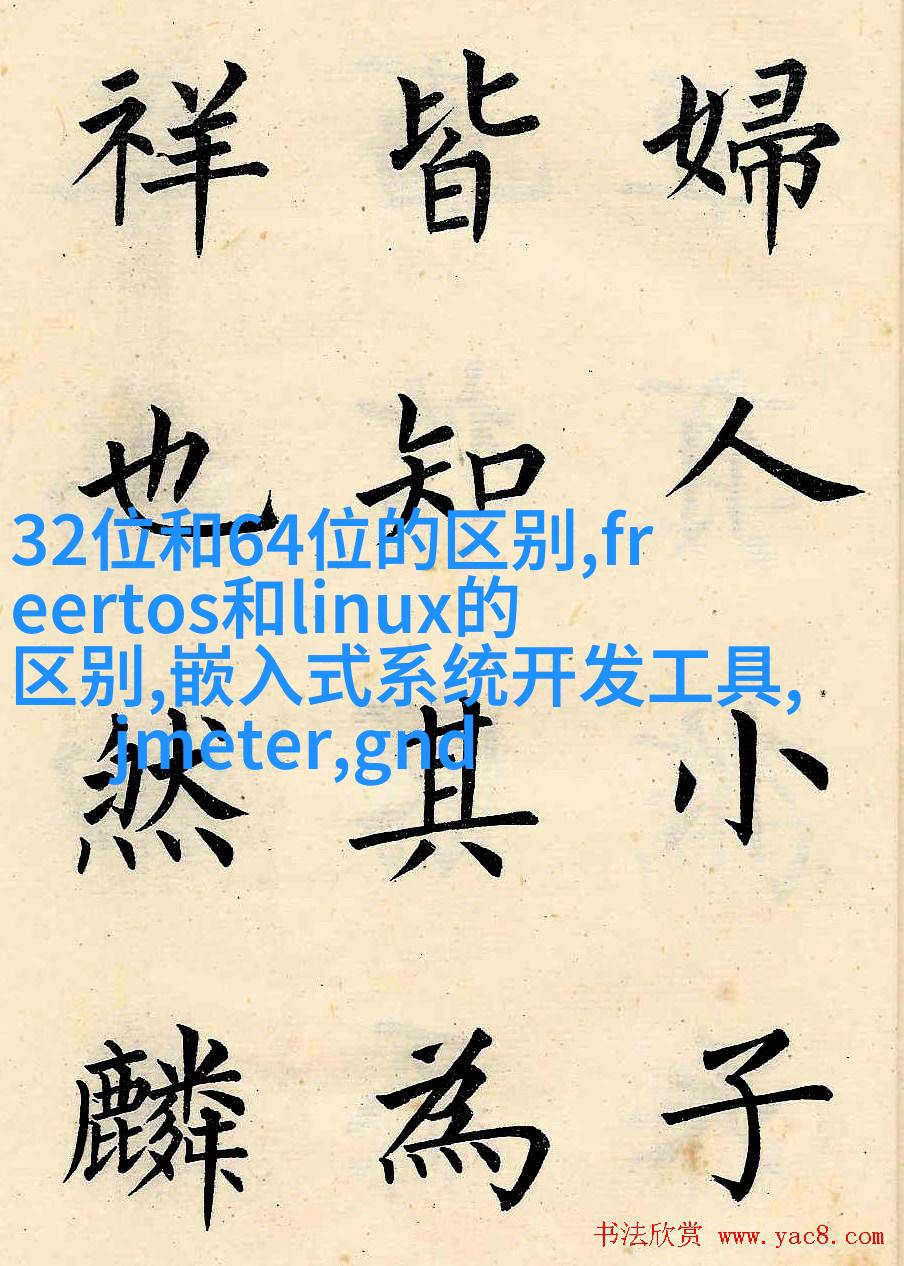 婦人小子
皆知其為
祥也然麟
32位和64位的区别,fr
eertos和linux的
区别,嵌入式系统开发工具,
jmeter,gnd
书法欣赏 www.yac8.com